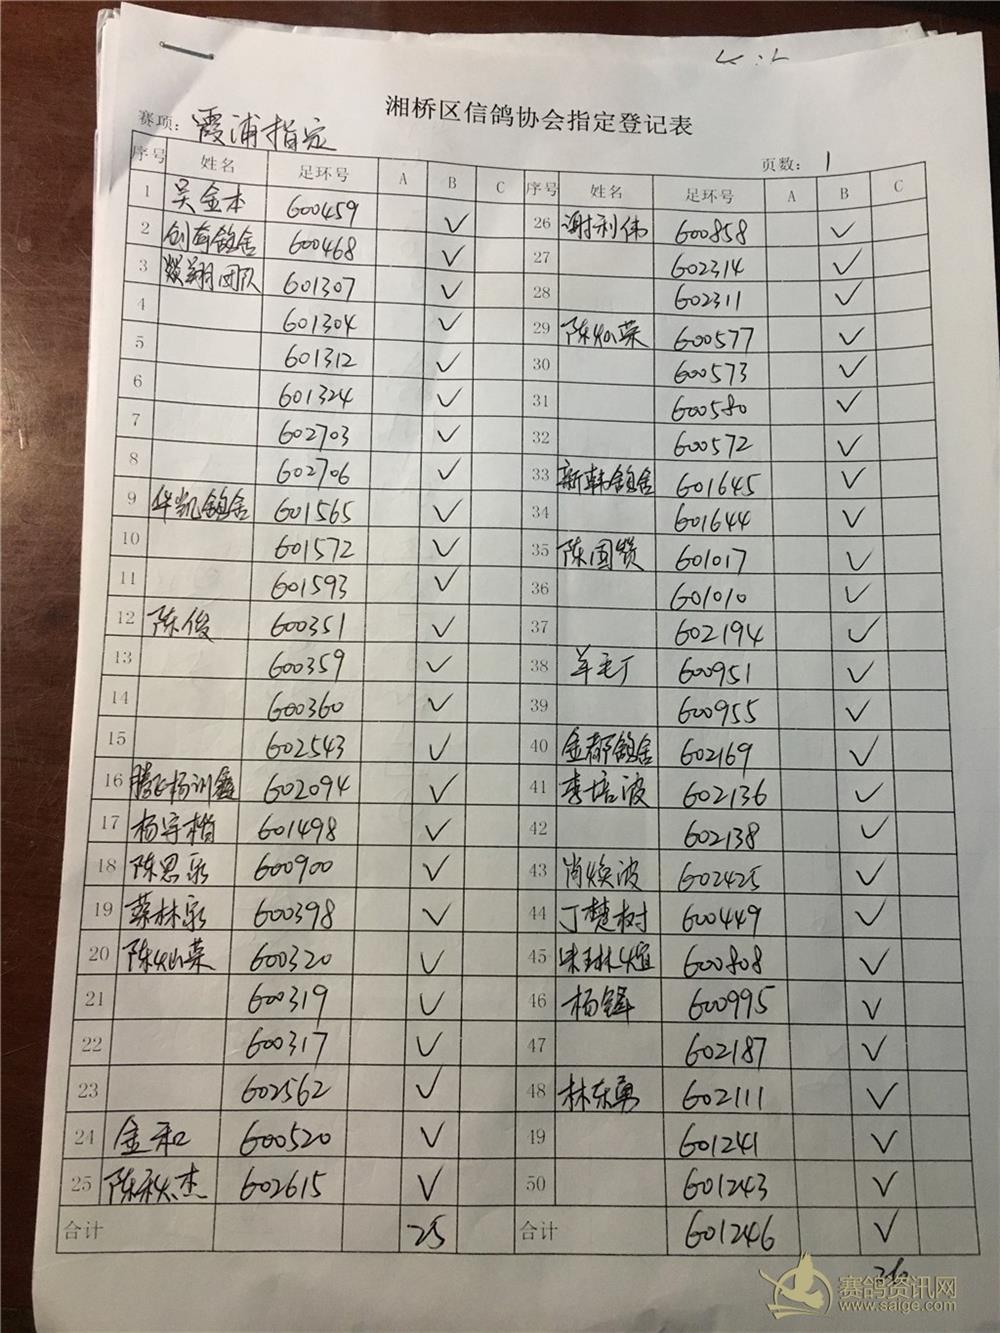 湘桥区信鸽协会指定登记表
赛项: 霞浦指定
页数: 1
序号 姓名 足环号 A B C 序号 姓名 足环号 A B C
1 吴金本 600459 ✓ 26 谢利伟 600858 ✓
2 创奇鸽舍 600468 ✓ 27 602314 ✓
3 燚翔团队 601307 ✓ 28 602311 ✓
4 601304 ✓ 29 陈灿荣 600577 ✓
5 601312 ✓ 30 600573 ✓
6 601324 ✓ 31 600580 ✓
7 602703 ✓ 32 600572 ✓
8 602706 ✓ 33 新韩鸽舍 601645 ✓
9 华凯鸽舍 601565 ✓ 34 601644 ✓
10 601572 ✓ 35 陈国贤 601017 ✓
11 601593 ✓ 36 601010 ✓
12 陈俊 600351 ✓ 37 602194 ✓
13 600359 ✓ 38 羊毛丁 600951 ✓
14 600360 ✓ 39 600955 ✓
15 602543 ✓ 40 金都鸽舍 602169 ✓
16 腾飞杨训鑫 602094 ✓ 41 李培波 602136 ✓
17 杨宇楷 601498 ✓ 42 602138 ✓
18 陈思永 600900 ✓ 43 肖焕波 602425 ✓
19 蔡林永 600398 ✓ 44 丁楚树 600449 ✓
20 陈灿荣 600320 ✓ 45 600808 ✓
21 600319 ✓ 46 杨锋 600995 ✓
22 600317 ✓ 47 602187 ✓
23 602562 ✓ 48 林东勇 602111 ✓
24 金和 600520 ✓ 49 601241 ✓
25 陈秋杰 602615 ✓ 50 601243 ✓
合计 25 合计 601246 ✓
26
赛鸽资讯网
www.saige.com